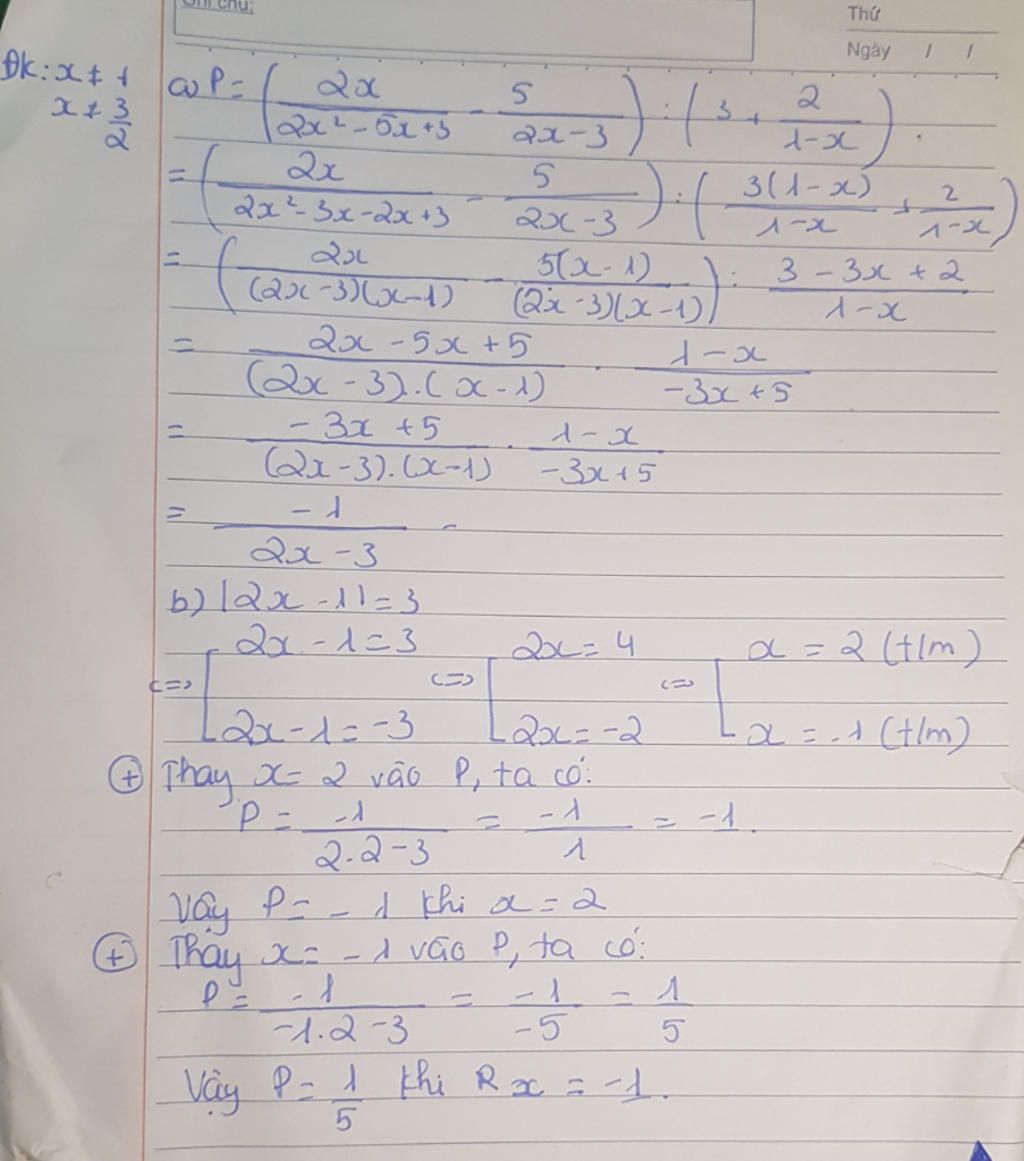 Ghi chú:
Thứ
Ngày / /
Đk: x ≠ 1
x ≠ 3/2
a) P = (2x/(2x² - 5x + 3) - 5/(2x - 3)) : (3 + 2/(1 - x)).
= (2x/(2x² - 3x - 2x + 3) - 5/(2x - 3)) : (3(1 - x)/(1 - x) + 2/(1 - x))
= (2x/((2x - 3)(x - 1)) - 5(x - 1)/((2x - 3)(x - 1))) : (3 - 3x + 2)/(1 - x)
= (2x - 5x + 5)/((2x - 3).(x - 1)) . (1 - x)/(-3x + 5)
= (-3x + 5)/((2x - 3).(x - 1)) . (1 - x)/(-3x + 5)
= -1/(2x - 3)
b) |2x - 1| = 3
<=> [ 2x - 1 = 3 <=> [ 2x = 4 <=> [ x = 2 (t/m)
2x - 1 = -3 2x = -2 x = -1 (t/m)
⊕ Thay x = 2 vào P, ta có:
P = -1/(2.2 - 3) = -1/1 = -1.
Vậy P = -1 khi x = 2
⊕ Thay x = -1 vào P, ta có:
P = -1/(-1.2 - 3) = -1/-5 = 1/5
Vậy P = 1/5 khi R x = -1.